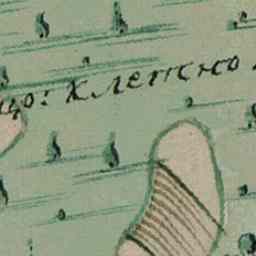 що: клетно